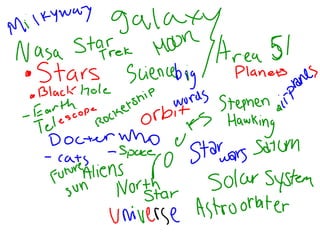 Milkyway
galaxy
Nasa
Star Trek
Moon
Area 51
Stars
Science
big words
Planets
airplanes
Black hole
Earth
Telescope
Rocketship
orbit
Stephen Hawking
Doctor Who
- cats
- Space
Star wars
Saturn
Future
Aliens
sun
North Star
Solar System
Universe
Astroorbiter